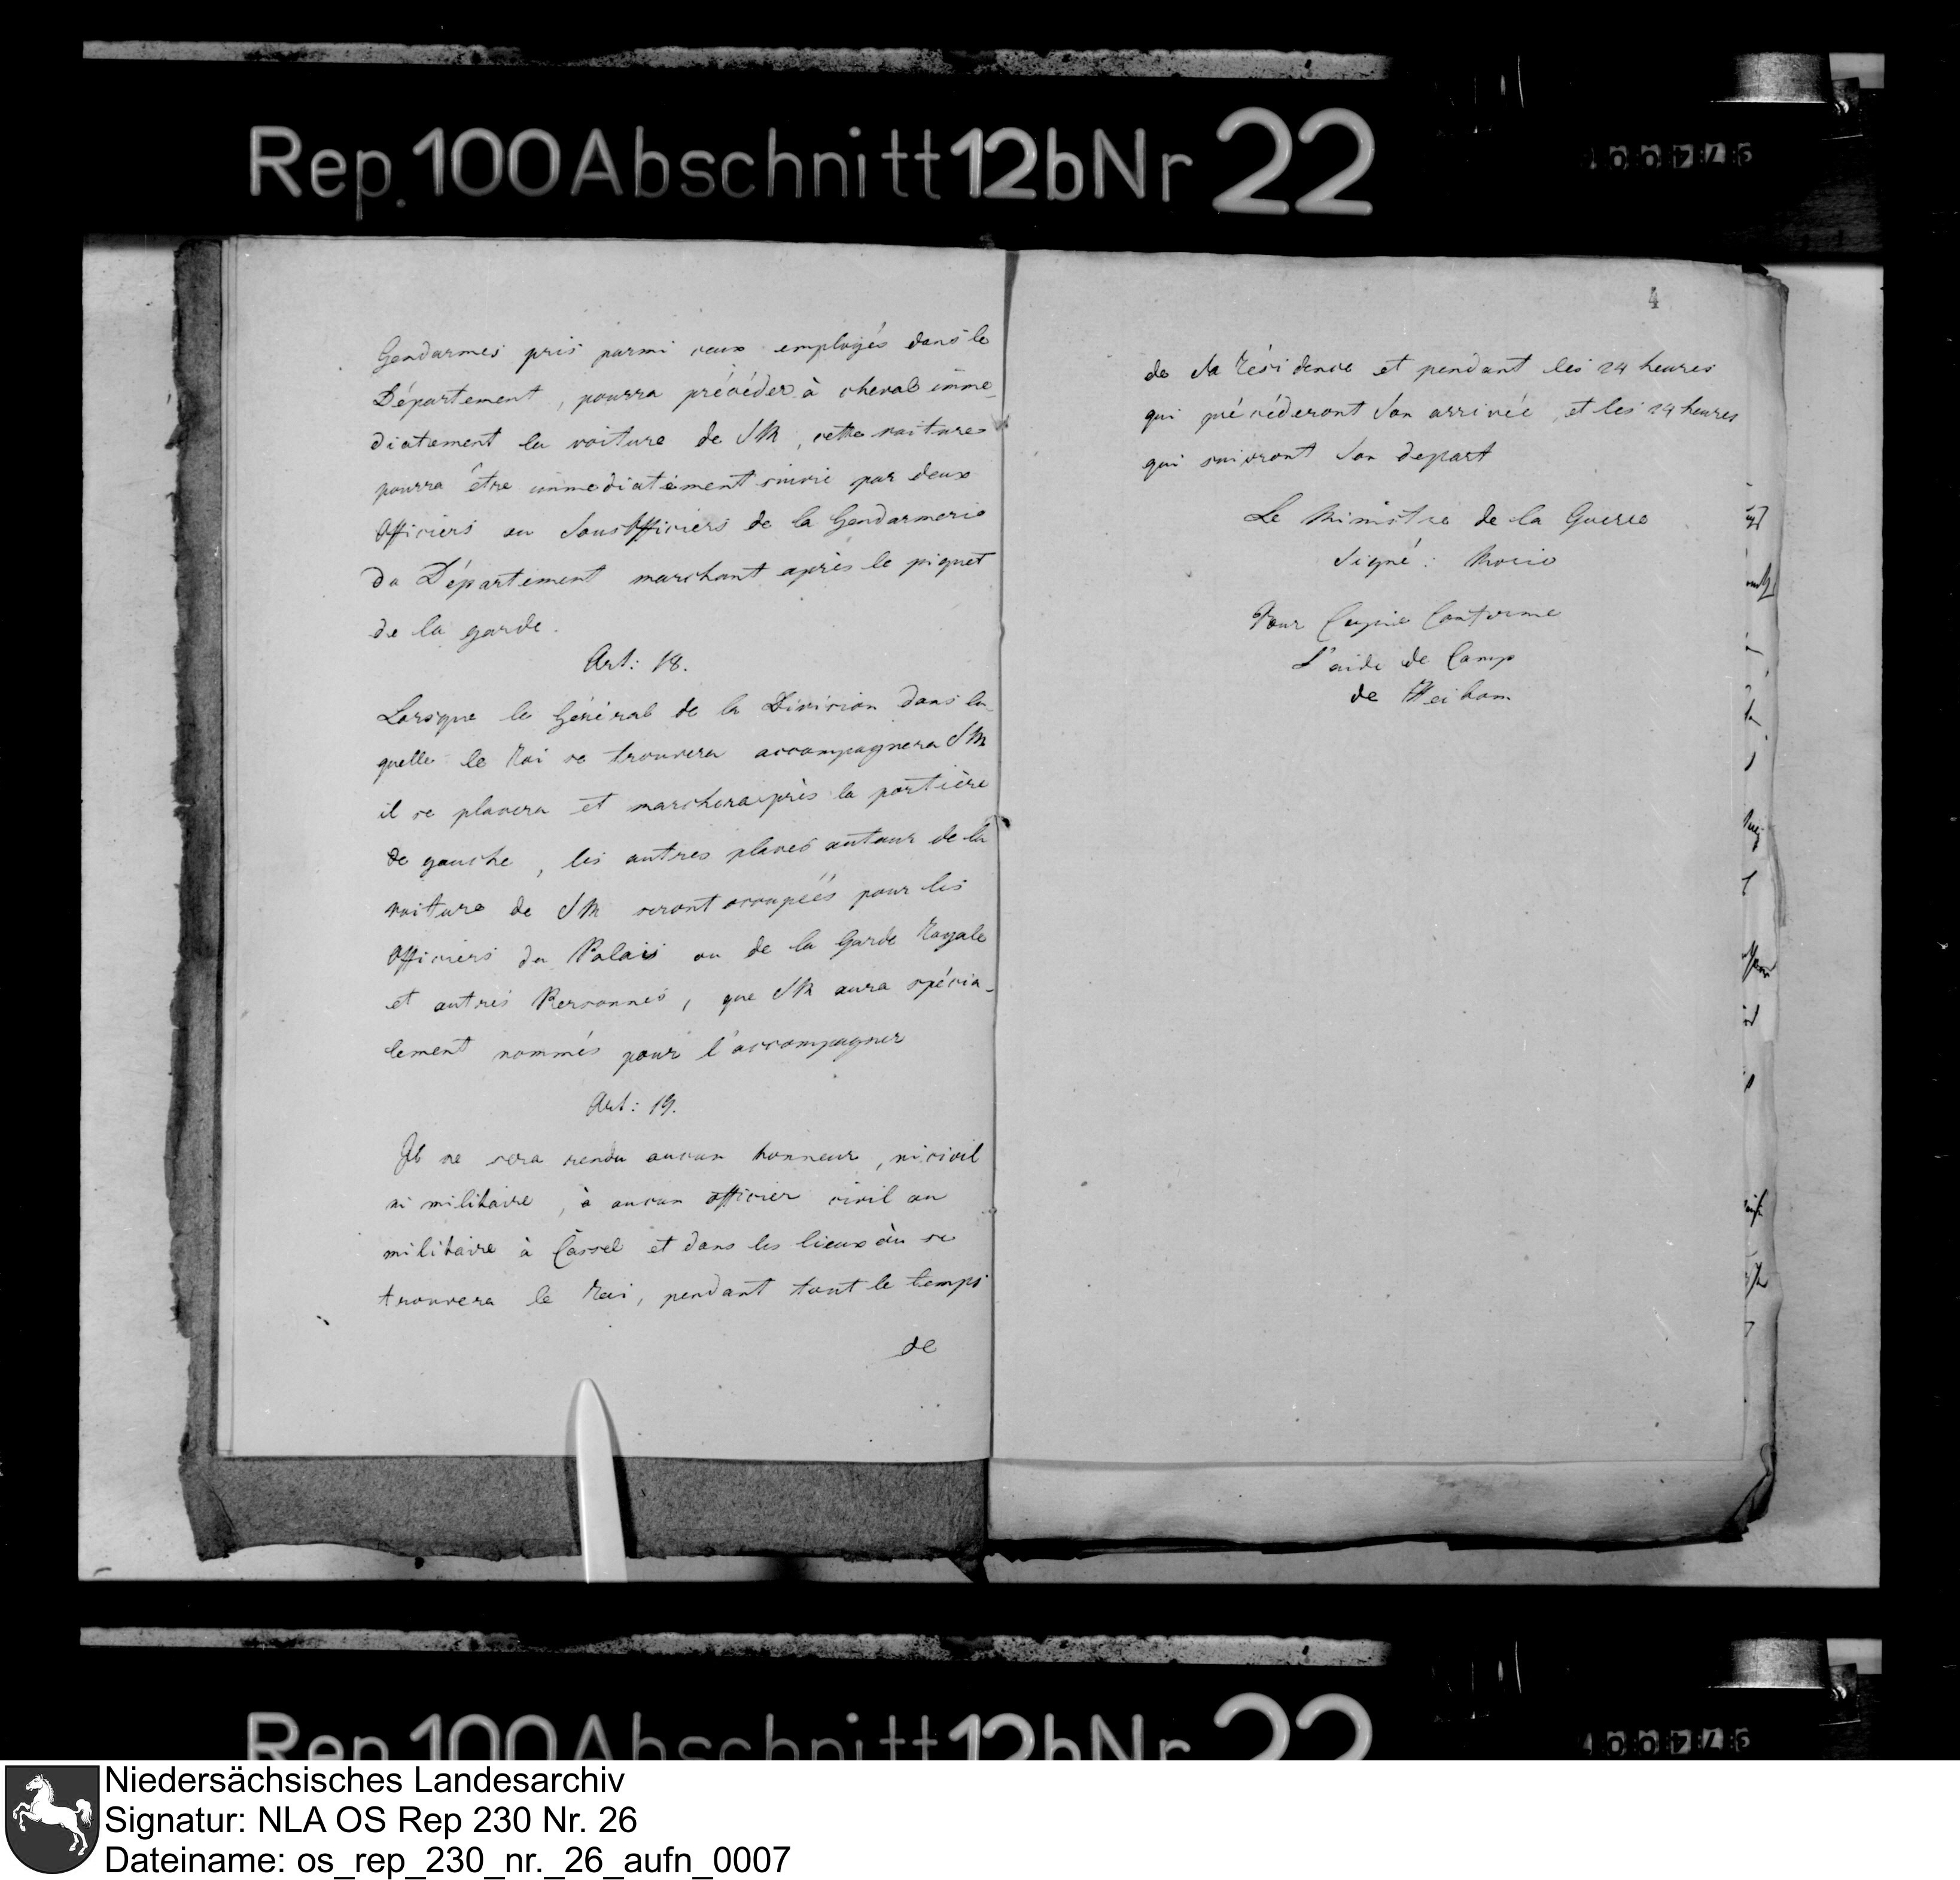 Rep. 100 Abschnitt 12b Nr 22
Gendarmes pris parmi ceux employés dans le
Département, pourra précéder à cheval imme-
diatement la voiture de SM, cette voiture
pourra être immediatement suivie par deux
Officiers ou Sousofficiers de la Gendarmerie
du Département marchant après le piquet
de la garde.
Art: 18.
Lorsque le Général de la Division dans la-
quelle le Roi se trouvera accompagnera SM
il se placera et marchera près la portière
de gauche, les autres places autour de la
voiture de SM seront occupées pour les
Officiers du Palais ou de la Garde Royale
et autres Personnes, que SM aura spécia-
lement nommés pour l'accompagner
Art: 19.
Il ne sera rendu aucun honneur, ni civil
ni militaire, à aucun officier civil ou
militaire à Cassel et dans les lieux où se
trouvera le Roi, pendant tout le temps
de
4
de Sa Résidence et pendant les 24 heures
qui précéderont Son arrivée, et les 24 heures
qui suivront Son depart
Le Ministre de la Guerre
Signé: Morio
Pour Copie Conforme
L'aide de Camp
de Meibom
Rep. 100 Abschnitt 12b Nr 22
Niedersächsisches Landesarchiv
Signatur: NLA OS Rep 230 Nr. 26
Dateiname: os_rep_230_nr._26_aufn_0007